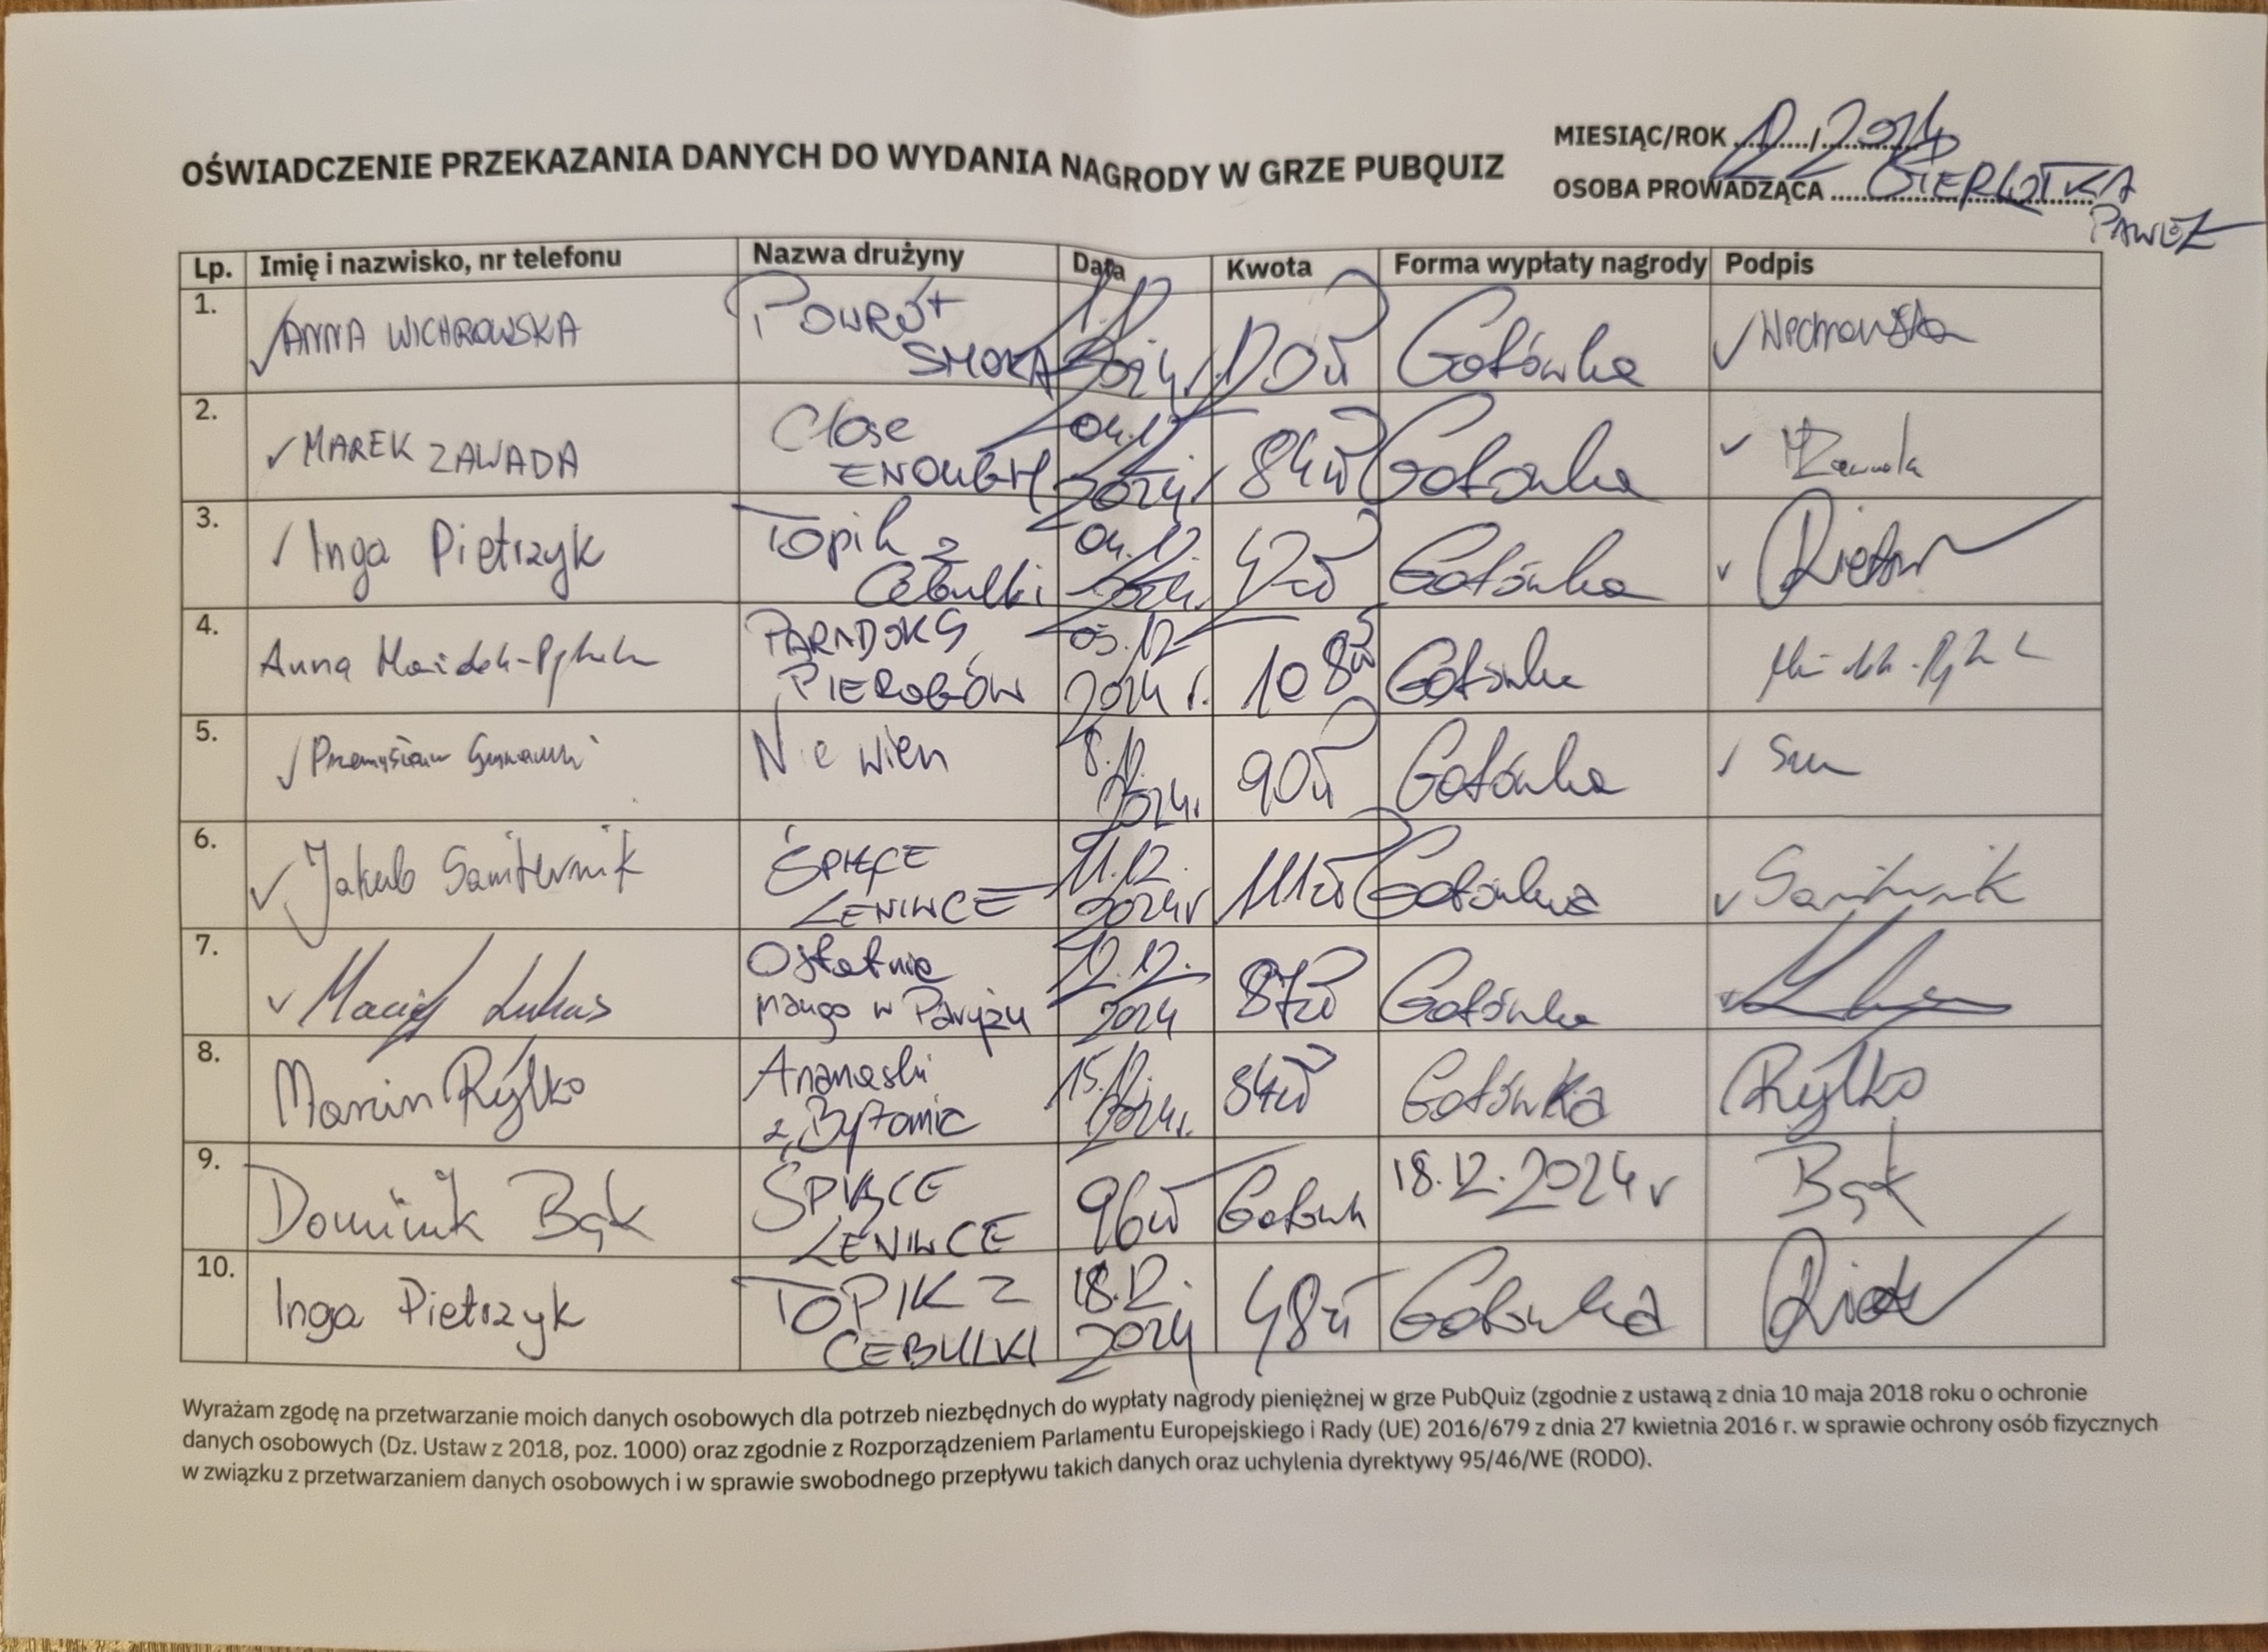 OŚWIADCZENIE PRZEKAZANIA DANYCH DO WYDANIA NAGRODY W GRZE PUBQUIZ
MIESIĄC/ROK 12/2024
OSOBA PROWADZĄCA BIERLOTKA
PAWEŁ
Lp. Imię i nazwisko, nr telefonu Nazwa drużyny Data Kwota Forma wypłaty nagrody Podpis
1. ANNA WICHROWSKA POWRÓT SMOKA 1.12 2024r. 120zł Gotówka Wichrowska
2. MAREK ZAWADA Close ENOUGH 04.12 2024r 84zł Gotówka
3. Inga Pietrzyk Topik z Cebulki 04.12. 2024r. 42zł Gotówka
4. Anna PARADOKS PIEROGÓW 05.12 2024 r. 108zł Gotówka
5. Przemysław Nie wien 8.12 2024r. 90zł Gotówka
6. Jakub Samiternik ŚPIĘCE LENIWCE 11.12. 2024r 111zł Gotówka Samiternik
7. Maciej Lukas Ostatnie mango w Paryżu 12.12. 2024 87zł Gotówka
8. Marcin Rýlko Ananaski z Bytomia 15.12. 2024r. 84zł Gotówka Rýlko
9. Dominik Bąk ŚPIĘCE LENIWCE 96zł Gotówk 18.12.2024r Bąk
10. Inga Pietrzyk TOPIK Z CEBULKI 18.12. 2024 48zł Gotówka
Wyrażam zgodę na przetwarzanie moich danych osobowych dla potrzeb niezbędnych do wypłaty nagrody pieniężnej w grze PubQuiz (zgodnie z ustawą z dnia 10 maja 2018 roku o ochronie
danych osobowych (Dz. Ustaw z 2018, poz. 1000) oraz zgodnie z Rozporządzeniem Parlamentu Europejskiego i Rady (UE) 2016/679 z dnia 27 kwietnia 2016 r. w sprawie ochrony osób fizycznych
w związku z przetwarzaniem danych osobowych i w sprawie swobodnego przepływu takich danych oraz uchylenia dyrektywy 95/46/WE (RODO).